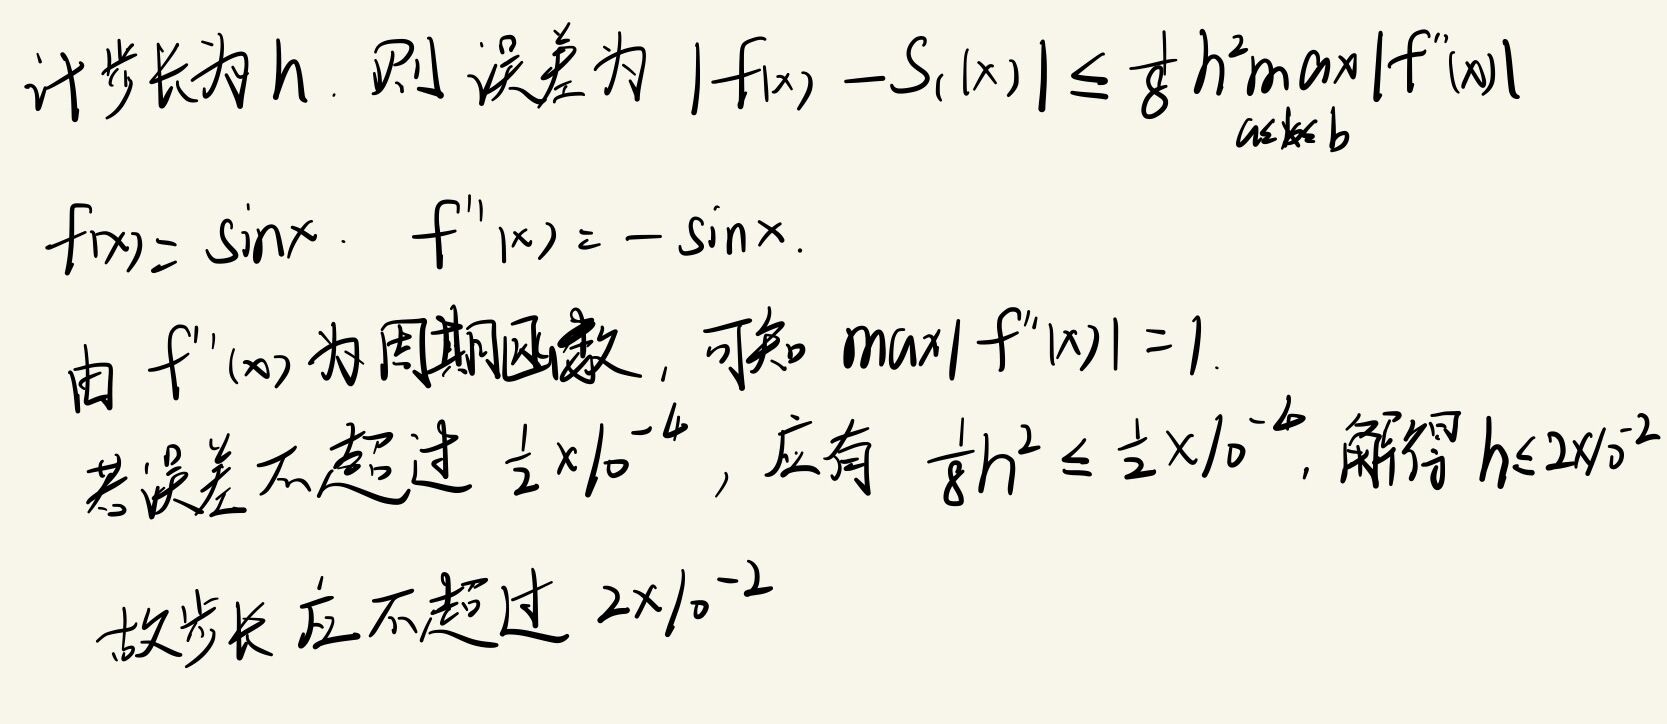 计步长为h. 则误差为 |f(x) - S₁(x)| ≤ 1/8 h² max |f''(x)|
a≤x≤b
f(x) = sinx. f''(x) = - sinx.
由 f''(x) 为周期函数, 可知 max|f''(x)| = 1.
若误差不超过 1/2 × 10⁻⁴, 应有 1/8 h² ≤ 1/2 × 10⁻⁴, 解得 h ≤ 2×10⁻²
故步长应不超过 2×10⁻²